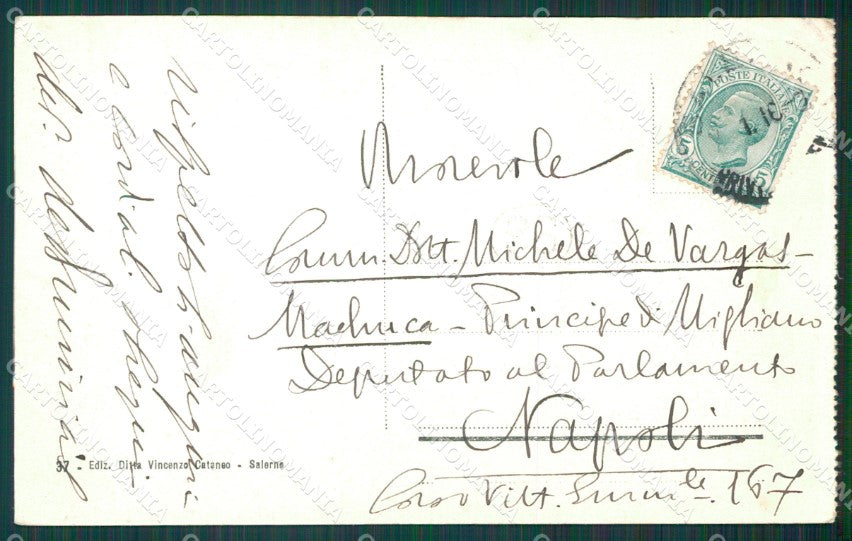 POSTE ITALIANE
5 CENT. 5
Onorevole
Comm. Dott. Michele De Vargas-
Machuca - Principe di Migliano
Deputato al Parlamento
Napoli
Corso Vitt. Emm.le 167
e cordial.
37 - Ediz. Ditta Vincenzo Cataneo - Salerno
CARTOLINOMANIA